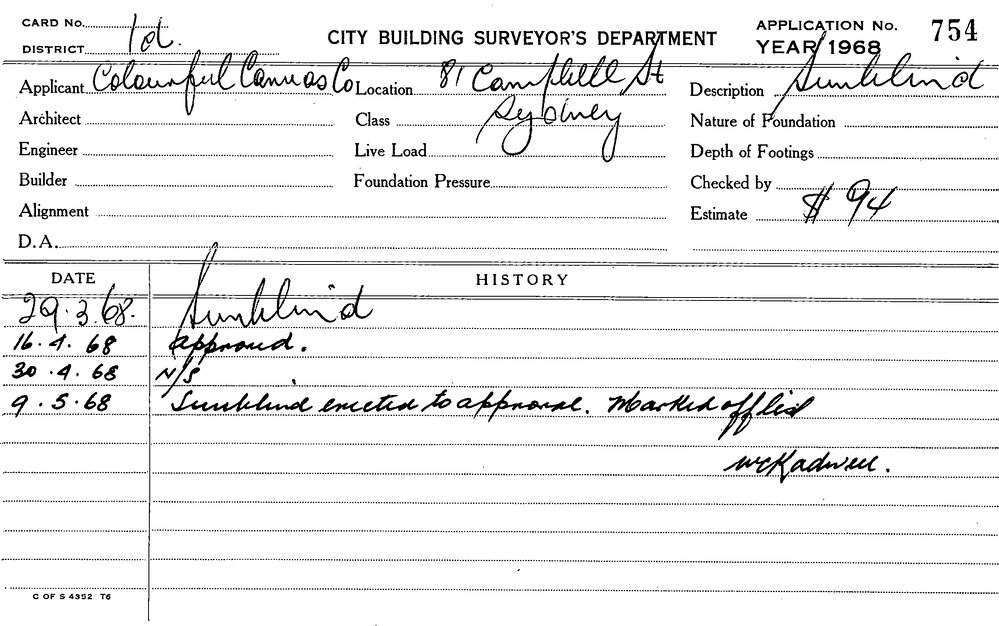 CARD No. APPLICATION No. 754
DISTRICT 1d. CITY BUILDING SURVEYOR'S DEPARTMENT YEAR/1968
Applicant Colourful Canvas Co Location 81 Campbell St Description Sunblind
Architect Class Sydney Nature of Foundation
Engineer Live Load Depth of Footings
Builder Foundation Pressure Checked by
Alignment Estimate $ 94
D.A.
DATE HISTORY
29.3.68. Sunblind
16.4.68 approved.
30.4.68 N/S
9.5.68 Sunblind erected to approval. Marked off list
C OF S 4352 T6